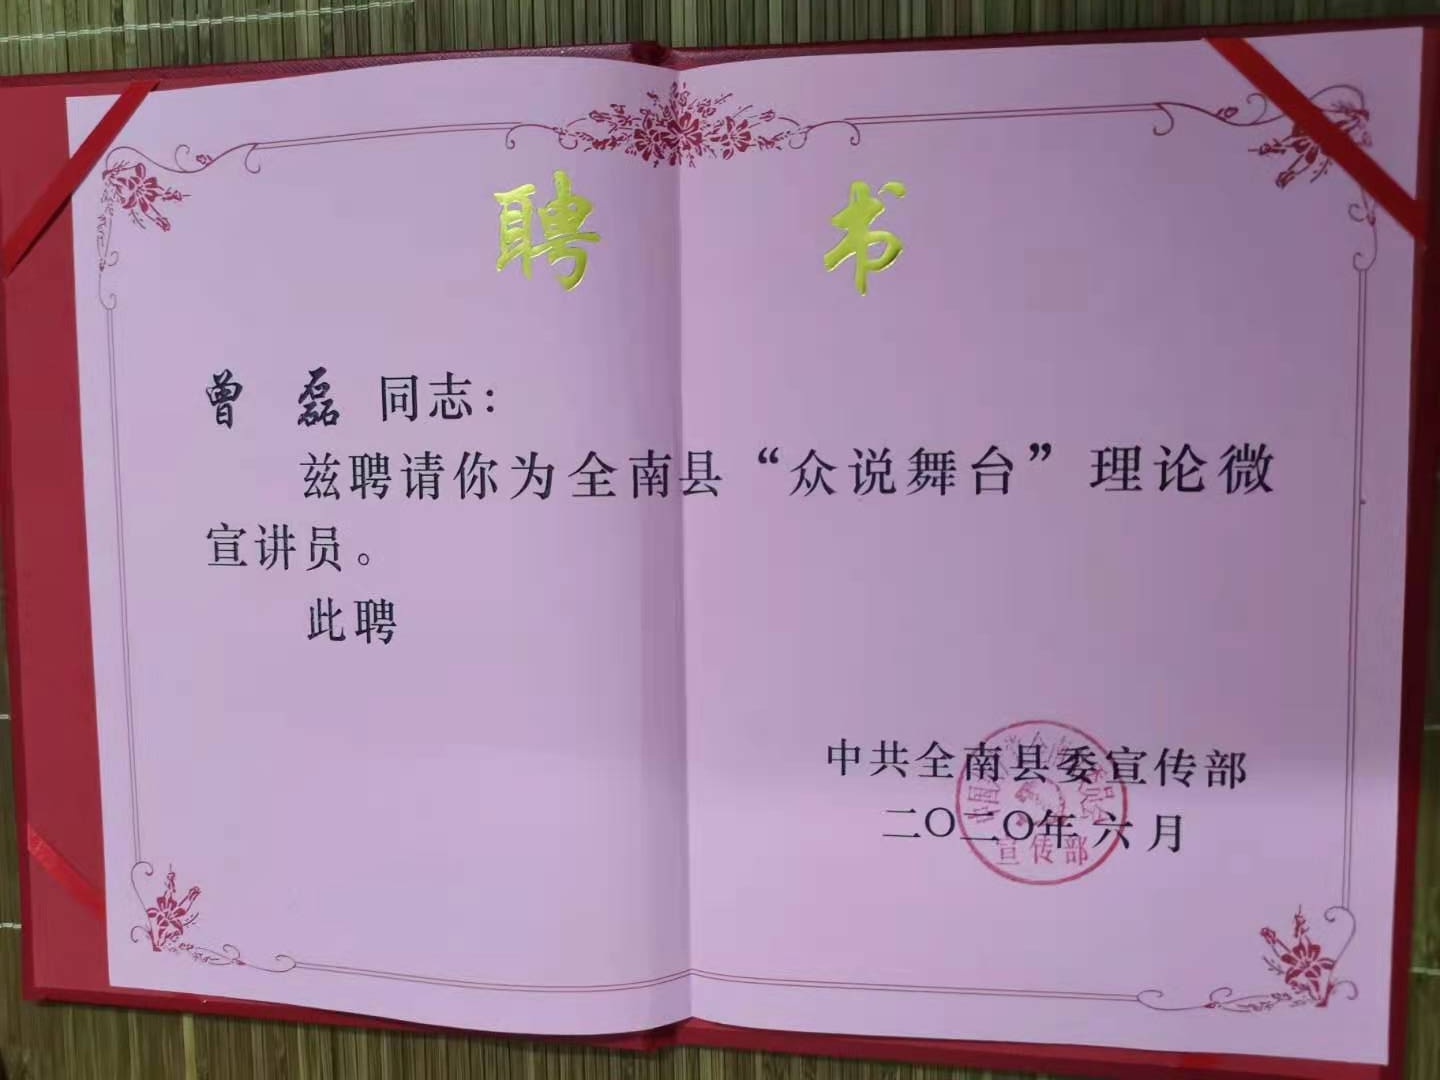 聘 书
曾 磊 同志：
兹聘请你为全南县“众说舞台”理论微
宣讲员。
此聘
中共全南县委宣传部
二〇二〇年六月
宣传部